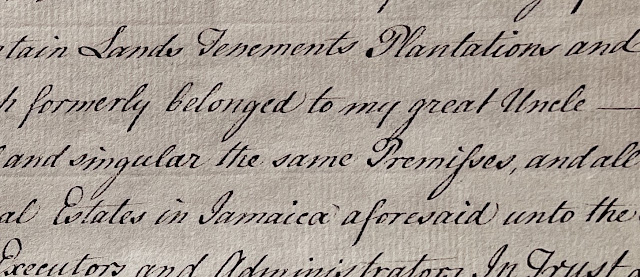 tain Lands Tenements Plantations and
h formerly belonged to my great Uncle —
and singular the same Premiſses, and all
al Estates in Jamaica aforesaid unto the
Executors and Administrators In Trust